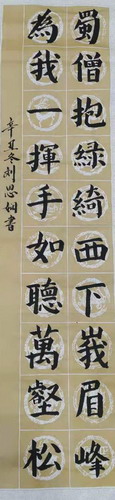 蜀僧抱綠綺西下峩眉峰
為我一揮手如聽萬壑松
辛丑冬刘思娴書